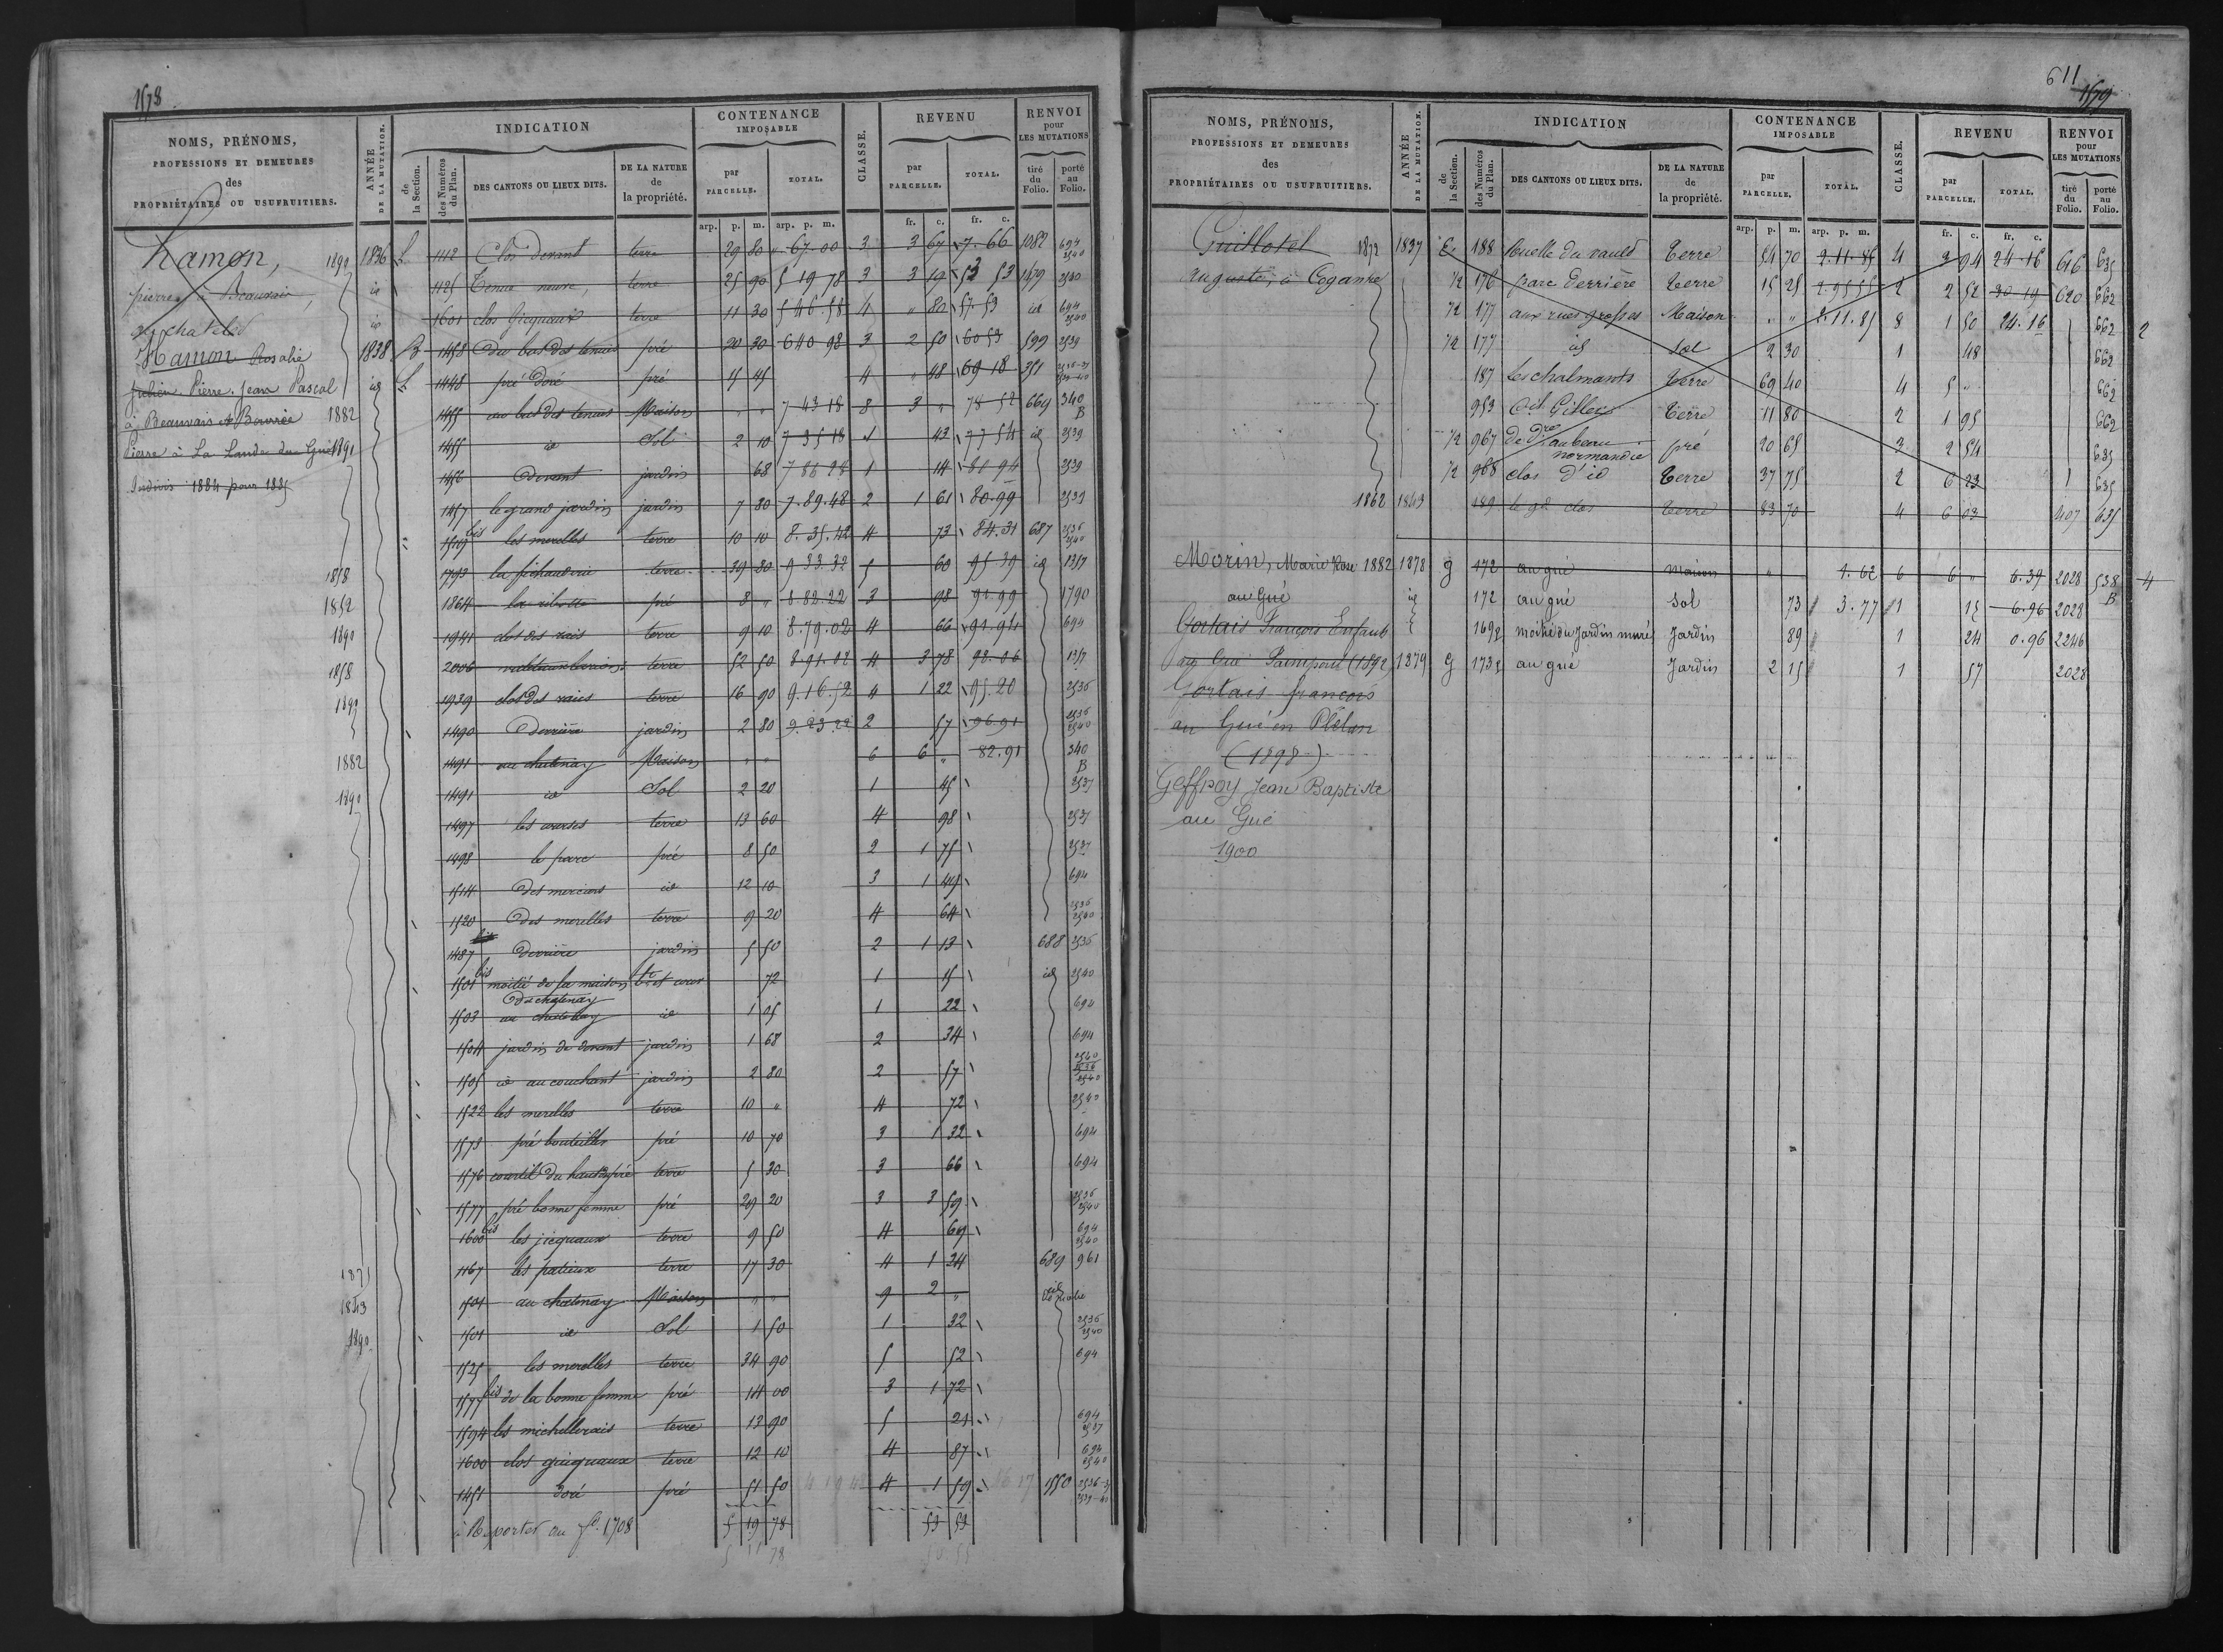 1578
NOMS, PRÉNOMS, PROFESSIONS ET DEMEURES des PROPRIÉTAIRES OU USUFRUITIERS.
ANNÉE DE LA MUTATION.
INDICATION
de la Section.
des Numéros du Plan.
DES CANTONS OU LIEUX DITS.
DE LA NATURE de la propriété.
CONTENANCE IMPOSABLE
par PARCELLE.
TOTAL.
CLASSE.
REVENU
par PARCELLE.
TOTAL.
RENVOI pour LES MUTATIONS
tiré du Folio.
porté au Folio.
arp. p. m. arp. p. m. fr. c. fr. c.
Hamon,
pierre, à Beauvais,
Hamon Rosalie
Julien Pierre. Jean Pascal
à Beauvais et Bourrée 1882
Pierre à La Lande du Gué 1891
Indivis 1884 pour 1885
1890 1836 1112 Clos Devant terre 29 80 67.00 3 3 67 7.66 1082 694 2540
id 1125 Tenue neuve, terre 25 90 5 19 78 3 3 19 53 53 1479 2540
id 1601 clos Gicquaux terre 11 30 5 46.58 4 " 80 57.53 id 694 2540
1838 B 1458 Du bas des tenues pré 20 30 6 40 98 3 2 50 60 53 599 2539
id 1448 pré Doré pré 15 45 4 " 48 69 18 351
1455 au bas des tenues Maison " " 7 43 18 8 3 " 78 52 669 340 B
1455 id Sol 2 10 7 35 18 1 43 77 54 id 2539
1456 Devant jardin 68 7 86 28 1 14 81 94 2539
1457 le grand jardin jardin 7 80 7.89.48 2 1 61 80.99 2539
1519 bis les merelles terre 10 10 8.35.42 4 73 84.31 687 2536 2540
1858 1793 la fichauderie terre 39 80 9 33.32 5 60 95 39 id 1357
1852 1864 la ribotte pré 8 " 8.82.22 3 98 90 99 1790
1890 1941 clos des raies terre 9 10 8.79.02 4 66 91.94 694
1858 2006 terre 52 50 8.91.02 4 3 78 98.06 1357
1890 1939 clos des raies terre 16 90 9.16.52 4 1 22 95.20 2536
1490 Derrière jardin 2 80 9.33.22 2 57 96 91 2536 2540
1882 1491 au chatenay Maison " " 6 6 " 82.91 340 B
1890 1491 id Sol 2 20 1 45 2537
1497 les courses terre 13 60 4 98 2537
1498 le parc pré 8 50 2 1 75 2537
1514 Des merciers id 12 10 3 1 49 694
1520 Des merelles terre 9 20 4 64 2536 2540
1487 Derrière jardin 5 50 2 1 13 688 2536
1501 bis moitié de la maison bt et cour 72 1 15 id 2540
Du chatenay
1503 au chatenay id 1 05 1 22 694
1504 jardin de devant jardin 1 68 2 34 694
1505 id au couchant jardin 2 80 2 57 2540 2536 2540
1522 les merelles terre 10 " 4 72 2540
1573 pré bouteiller pré 10 70 3 1 32 694
1576 courtil du haut du pré terre 5 30 3 66 694
1577 pré bonne femme pré 29 20 3 3 59 2536 2540
1600 bis les jicquaux terre 9 50 4 69 694 2540
1871 1167 les patieux terre 17 30 4 1 34 689 961
1843 1501 au chatenay Maison " " 9 2 " id
1890 1501 id Sol 1 50 1 32 2536 2540
1525 les merelles terre 34 90 5 52 694
1577 bis de la bonne femme pré 14 00 3 1 72
1594 les michellerais terre 13 90 5 21 694 2537
1600 clos gicquaux terre 12 10 4 87 694 2540
1451 Doré pré 51 50 4 1 59 1550 2536-37 2539-40
à Reporter au fo. 1708 5 19 78 53 53
611
1579
NOMS, PRÉNOMS, PROFESSIONS ET DEMEURES des PROPRIÉTAIRES OU USUFRUITIERS.
ANNÉE DE LA MUTATION.
INDICATION
de la Section.
des Numéros du Plan.
DES CANTONS OU LIEUX DITS.
DE LA NATURE de la propriété.
CONTENANCE IMPOSABLE
par PARCELLE.
TOTAL.
CLASSE.
REVENU
par PARCELLE.
TOTAL.
RENVOI pour LES MUTATIONS
tiré du Folio.
porté au Folio.
arp. p. m. arp. p. m. fr. c. fr. c.
Guillotel 1872 1837 E 188 Ruelle du vauld Terre 54 70 2.11.85 4 3 94 24 16 616 635
Auguste, à Coganne 1/2 176 parc Derrière Terre 15 25 2.95 55 2 2 52 30 19 620 662
1/2 177 aux rues grosses Maison " " 2.11.85 8 1 50 24.16 662 2
1/2 177 id Sol 2 30 1 48 662
187 les chalmants Terre 69 40 4 5 " 662
953 Terre 11 80 2 1 95 662
1/2 967 normandie pré 20 65 3 2 54 635
1/2 968 clos d'id Terre 37 75 2 6 23 635
1862 1843 189 le gd clos Terre 83 70 4 6 03 407 635
Morin, Marie 1882 1878 g 172 au gué maison " 1.62 6 6 " 6.39 2028 538 B 4
au Gué id 172 au gué Sol 73 3.77 1 15 6.96 2028
Gortais François Enfants 169 moitié du Jardin muré Jardin 89 1 24 0.96 2246
au Gué Paimpont (1892) 1879 g 173 au gué Jardin 2 15 1 57 2028
Gortais francois
au Gué en Plélan
(1898)
Geffroy Jean Baptiste
au Gué
1900